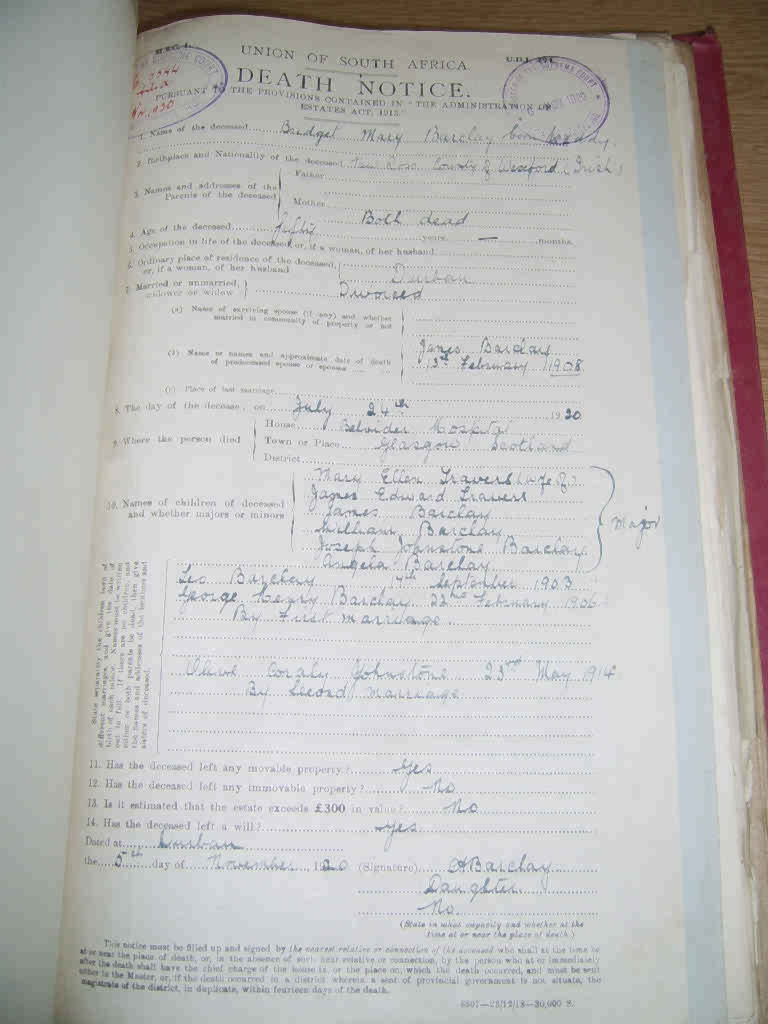 M.S.C. 1.
UNION OF SOUTH AFRICA.
DEATH NOTICE.
PURSUANT TO THE PROVISIONS CONTAINED IN "THE ADMINISTRATION OF
ESTATES ACT, 1913."
1. Name of the deceased Bridget Mary Barclay born
2. Birthplace and Nationality of the deceased New Ross County of Wexford (Irish)
3. Names and addresses of the Parents of the deceased
Father
Mother
Both dead
4. Age of the deceased fifty years — months.
5. Occupation in life of the deceased, or, if a woman, of her husband
6. Ordinary place of residence of the deceased, or, if a woman, of her husband
Durban
7. Married or unmarried, widower or widow
Divorced
(a) Name of surviving spouse (if any) and whether married in community of property or not
(b) Name or names and approximate date of death of predeceased spouse or spouses
James Barclay
13th February 1908
(c) Place of last marriage
8. The day of the decease, on July 24th 1920
9. Where the person died
House Belvider Hospital
Town or Place Glasgow Scotland
District
10. Names of children of deceased and whether majors or minors
Mary Ellen Travers (wife of)
James Edward Travers
James Barclay
William Barclay
Joseph Johnstone Barclay
Angela Barclay
Major
Leo Barclay 17th September 1903
George Henry Barclay 22nd February 1906
By First marriage
State separately the children born of different marriages and give the date of birth of each minor. Names must be written out in full. If there are no children, and either or both parents be dead, then give the names and addresses of the brothers and sisters of deceased.
Olive Coraly Johnstone 23rd May 1914
By Second Marriage
11. Has the deceased left any movable property? Yes
12. Has the deceased left any immovable property? No
13. Is it estimated that the estate exceeds £300 in value? No
14. Has the deceased left a will? Yes
Dated at Durban
the 5th day of November 1920 (Signature) A Barclay
Daughter
No
(State in what capacity and whether at the
time at or near the place of death.)
This notice must be filled up and signed by the nearest relative or connection of the deceased who shall at the time be
at or near the place of death, or, in the absence of such near relative or connection, by the person who at or immediately
after the death shall have the chief charge of the house in, or the place on, which the death occurred, and must be sent
either to the Master, or, if the death occurred in a district wherein a seat of provincial government is not situate, the
magistrate of the district, in duplicate, within fourteen days of the death.